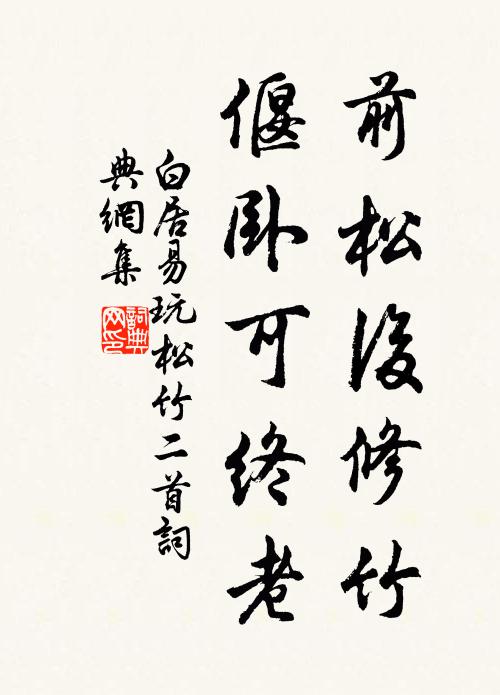 前松後修竹
偃卧可終老
白居易玩松竹二首詞
典網集
詞典网印